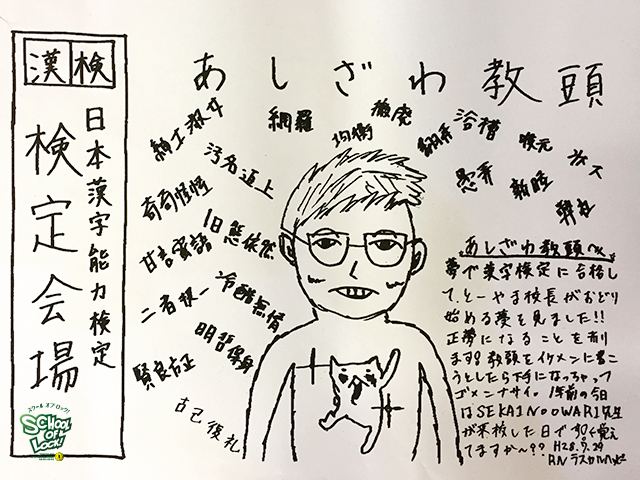 漢検
日本漢字能力検定
検定会場
あしざわ教頭
紳士淑女
網羅
均衡
撤廃
浴槽
復元
汚名返上
奇奇怪怪
旧態依然
愚弄
親睦
甘言蜜語
二者択一
冷酷無情
明哲保身
賢良方正
古己復礼
あしざわ教頭へ
夢で漢字検定に合格し
て、とーやま校長がおどり
始める夢を見ました!!
正夢になることを祈り
ます 教頭をイケメンに書こ
うとしたら下手になっちゃって
ゴメンナサイ。1年前の今日
はSEKAI NO OWARI先生
が来校した日です 覚え
てますか〜??
H28.9.29
RN ラスカル
スクール オブ ロック!
SCHOOL OF LOCK!